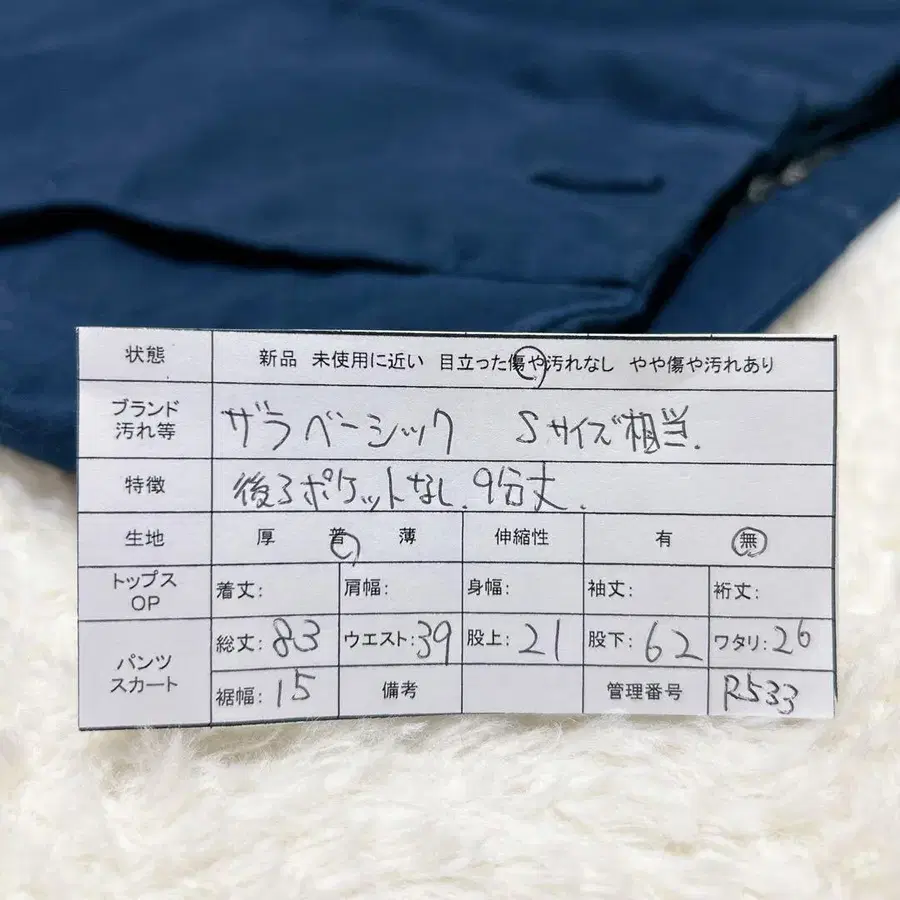 状態 新品 未使用に近い 目立った傷や汚れなし やや傷や汚れあり
ブランド
汚れ等 ザラベーシック Sサイズ相当.
特徴 後ろポケットなし. 9分丈.
生地 厚 普 薄 伸縮性 有 無
トップス
OP 着丈: 肩幅: 身幅: 袖丈: 裄丈:
パンツ
スカート 総丈: 83 ウエスト: 39 股上: 21 股下: 62 ワタリ: 26
裾幅: 15 備考 管理番号 R533